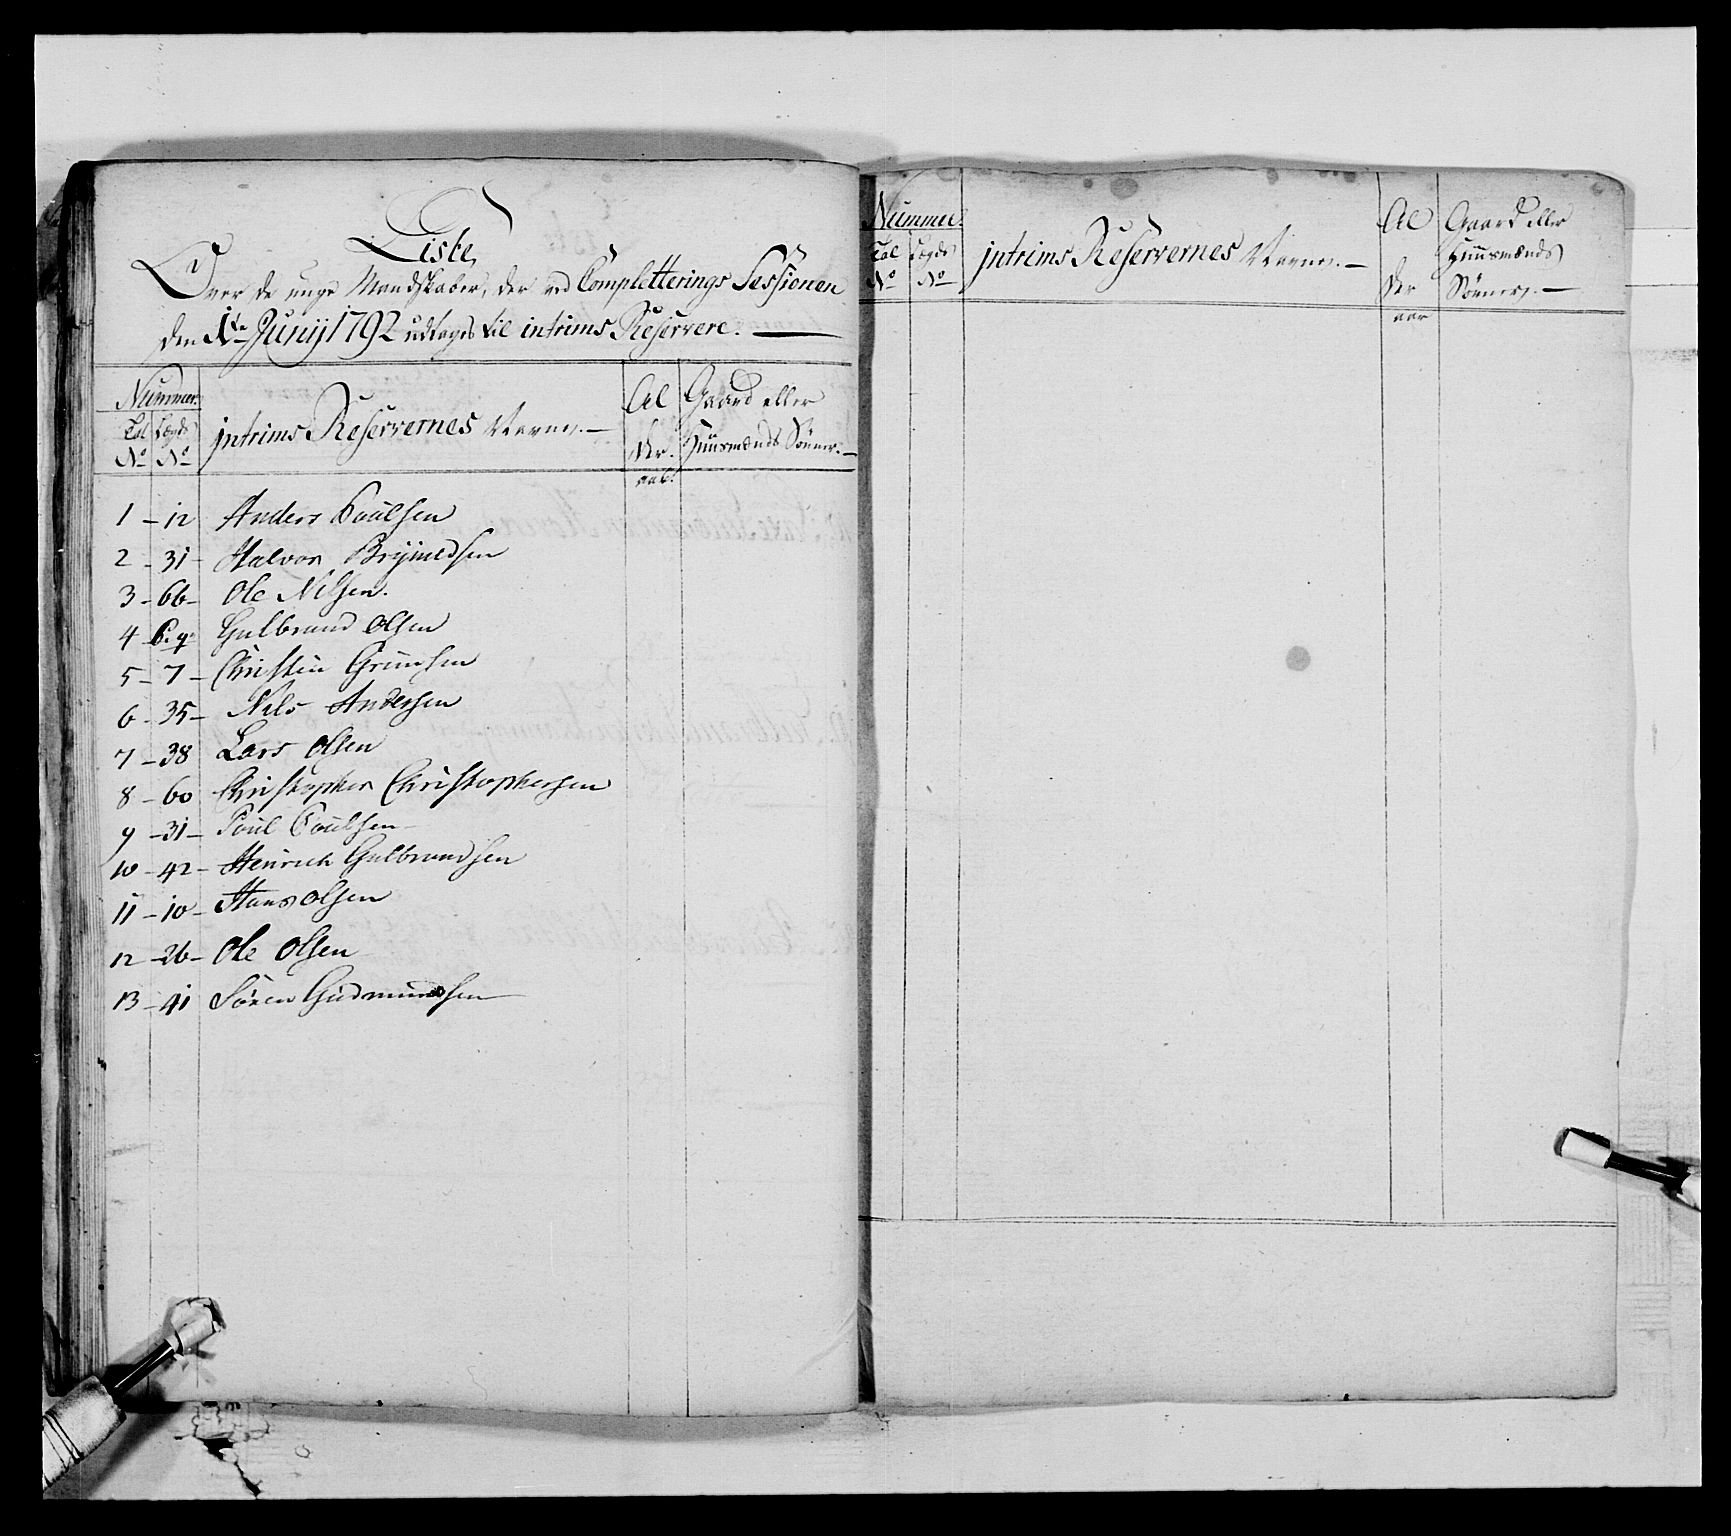 Liste,
Over de unge Mandskaber, der ved Completterings Sessionen
den 1te Junij 1792 udtages til intrims Reservere.
Nummer. Al Gaard eller
Tal Lægds intrims Reservernes Navne. der. Huusmænds Sönner.
No No aar.
1 - 12 Anders Poulsen
2 - 31 - Halvor Brynildsen
3 - 66 - Ole Nilsen.
4 Gulbrand Olsen
5 - 7 - Christen
6 - 35 - Nils Andersen
7 - 38 Lars Olsen
8 - 60 Christopher Christophersen
9 - 31 - Poul Poulsen
10 - 42 - Henrich Gulbrandsen
11 - 10 - Hans Olsen
12 - 26 - Ole Olsen
13 - 41 Sören Gudmundsen
Nummer. Al Gaard eller
Tal Lægds intrims Reservernes Navne. der Huusmænds
No No aar Sönner.